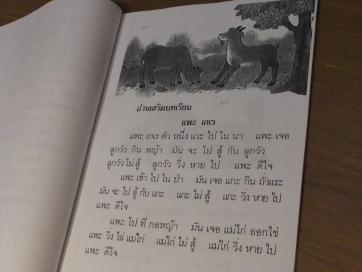 อ่านเสริมบทเรียน
แพะ เกเร
แพะ เกเร ตัว หนึ่ง แวะ ไป ใน นา แพะ เจอ
ลูกวัว กิน หญ้า มัน จะ ไป สู้ กับ ลูกวัว
ลูกวัว ไม่ สู้ ลูกวัว วิ่ง หาย ไป แพะ ดีใจ
แพะ เข้า ไป ใน ป่า มัน เจอ แกะ กิน ถั่วแระ
มัน จะ ไป สู้ กับ แกะ แกะ ไม่ สู้ แกะ วิ่ง หาย ไป
แพะ ดีใจ
แพะ ไป ที่ กอหญ้า มัน เจอ แม่ไก่ ออกไข่
แพะ วิ่ง ไล่ แม่ไก่ แม่ไก่ ไม่ สู้ แม่ไก่ วิ่ง หาย ไป
แพะ ดีใจ